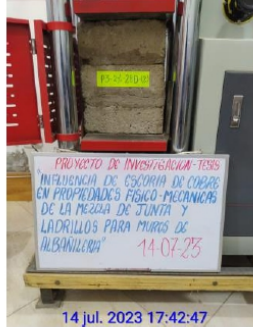 PROYECTO DE INVESTIGACION-TESIS
"INFLUENCIA DE ESCORIA DE COBRE
EN PROPIEDADES FISICO-MECANICAS
DE LA MEZCLA DE JUNTA Y
LADRILLOS PARA MUROS DE
ALBAÑILERIA"
14-07-23
14 jul. 2023 17:42:47